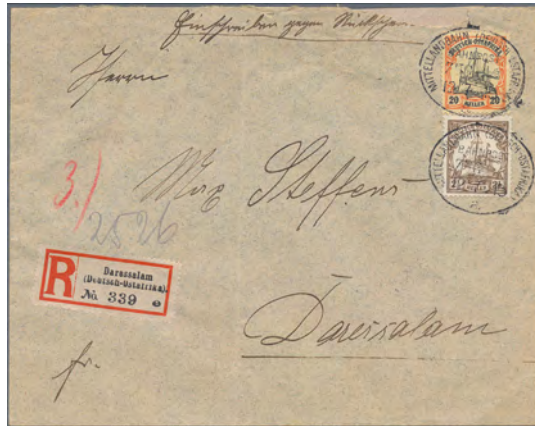 Einschreiben gegen Rückschein
MITTELLANDBAHN (DEUTSCH-OSTAFRIKA)
BAHNPOST
DEUTSCH-OSTAFRIKA
20 20
HELLER
Herrn
MITTELLANDBAHN (DEUTSCH-OSTAFRIKA)
BAHNPOST
a
Max Steffens
3./
2526
R
Daressalam
(Deutsch-Ostafrika).
No. 339 e
Daressalam
fr.